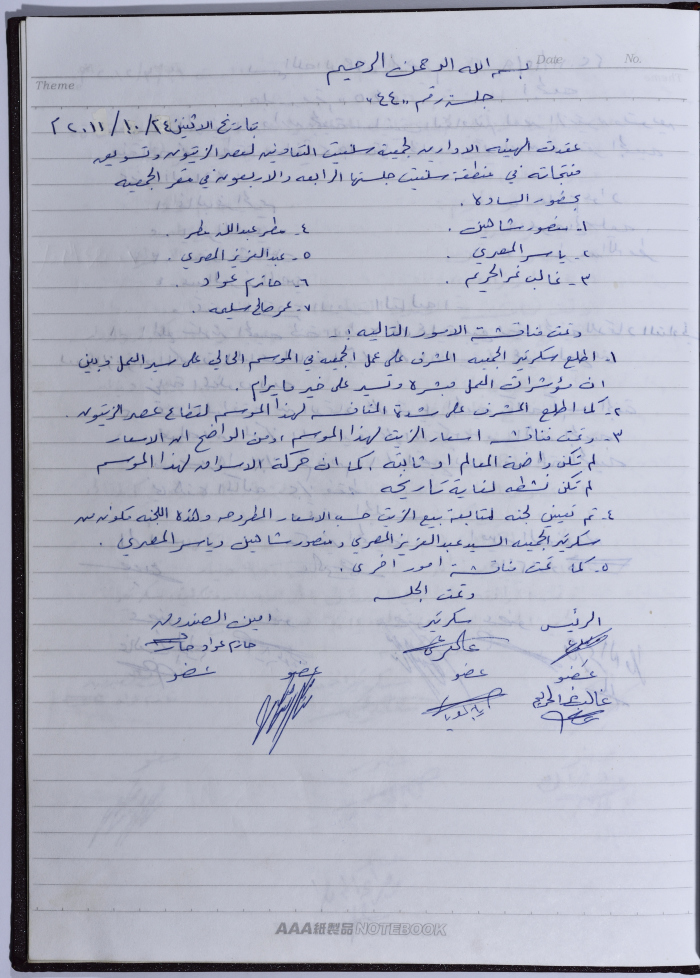 Date: No.
Theme
بسم الله الرحمن الرحيم
جلسة رقم "٤٤"
بتاريخ الاثنين ٢٤/١٠/٢٠١١ م
عقدت الهيئة الادارية لجمعية سلفيت التعاونية لعصر الزيتون وتسويق
منتجاته في منطقة سلفيت جلستها الرابعه والاربعون في مقر الجمعيه
بحضور السادة .
١- منصور شاهين . ٤- مطر عبدالله مطر .
٢- ياسر المصري . ٥- عبدالعزيز المصري .
٣- غالب غر الحريم . ٦- حازم عواد .
٧- عمر صالح سليمه .
وتمت مناقشة الامور التاليه :
١- اطلع سكرتير الجمعيه المشرف على عمل الجمعيه في الموسم الحالي على سير العمل وبين
ان مؤشرات العمل مبشرة وتسير على خير ما يرام
٢- كما اطلع المشرف على شدة المنافسة لهذا الموسم لقطاع عصر الزيتون .
٣- وتمت مناقشة اسعار الزيت لهذا الموسم ومن الواضح ان الاسعار
لم تكن واضحة المعالم او ثابتة . كما ان حركة الاسواق لهذا الموسم
لم تكن نشطه لغاية تاريخه
٤- تم تعيين لجنه لمتابعة بيع الزيت حسب الاسعار المطروحه وهذه اللجنه تكونت من
سكرتير الجمعيه السيد عبدالعزيز المصري ومنصور شاهين وياسر المصري .
٥- كما تمت مناقشة امور اخرى .
وتمت الجلسه
الرئيس سكرتير امين الصندوق
حازم عواد
عضو عضو عضو عضو
AAA紙製品NOTEBOOK